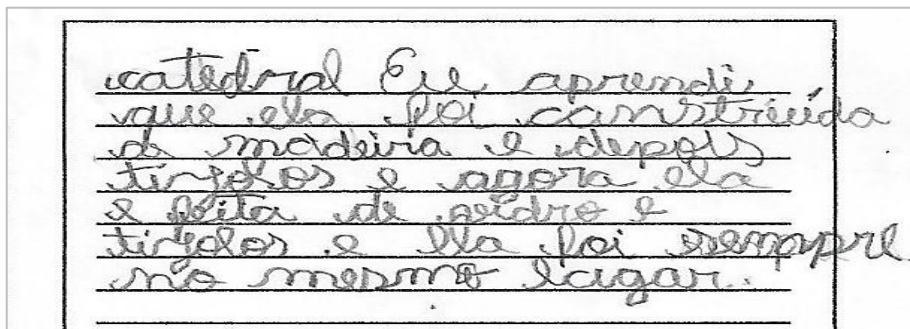 catedral Eu aprendi
que ela foi construída
de madeira e depois
tinjolos e agora ela
e feita de vidro e
tinjolos e ela foi sempre
no mesmo lugar.